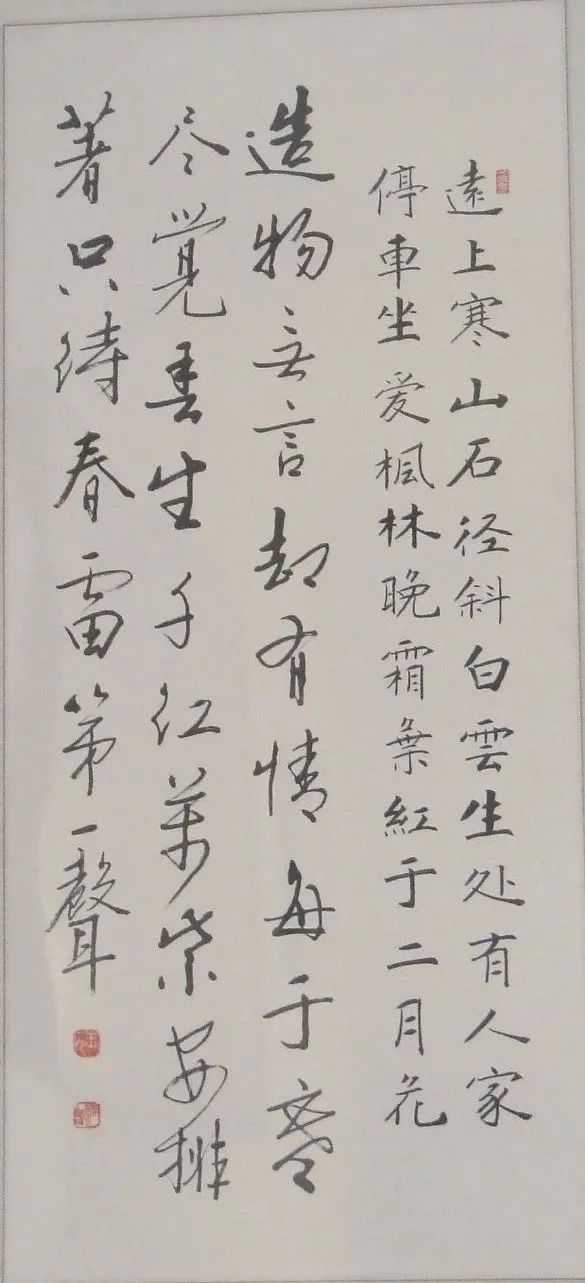 遠上寒山石径斜白雲生处有人家
停車坐爱楓林晚霜葉紅于二月花
造物無言却有情每于寒
尽覺春生千红萬紫安排
著只待春雷第一聲